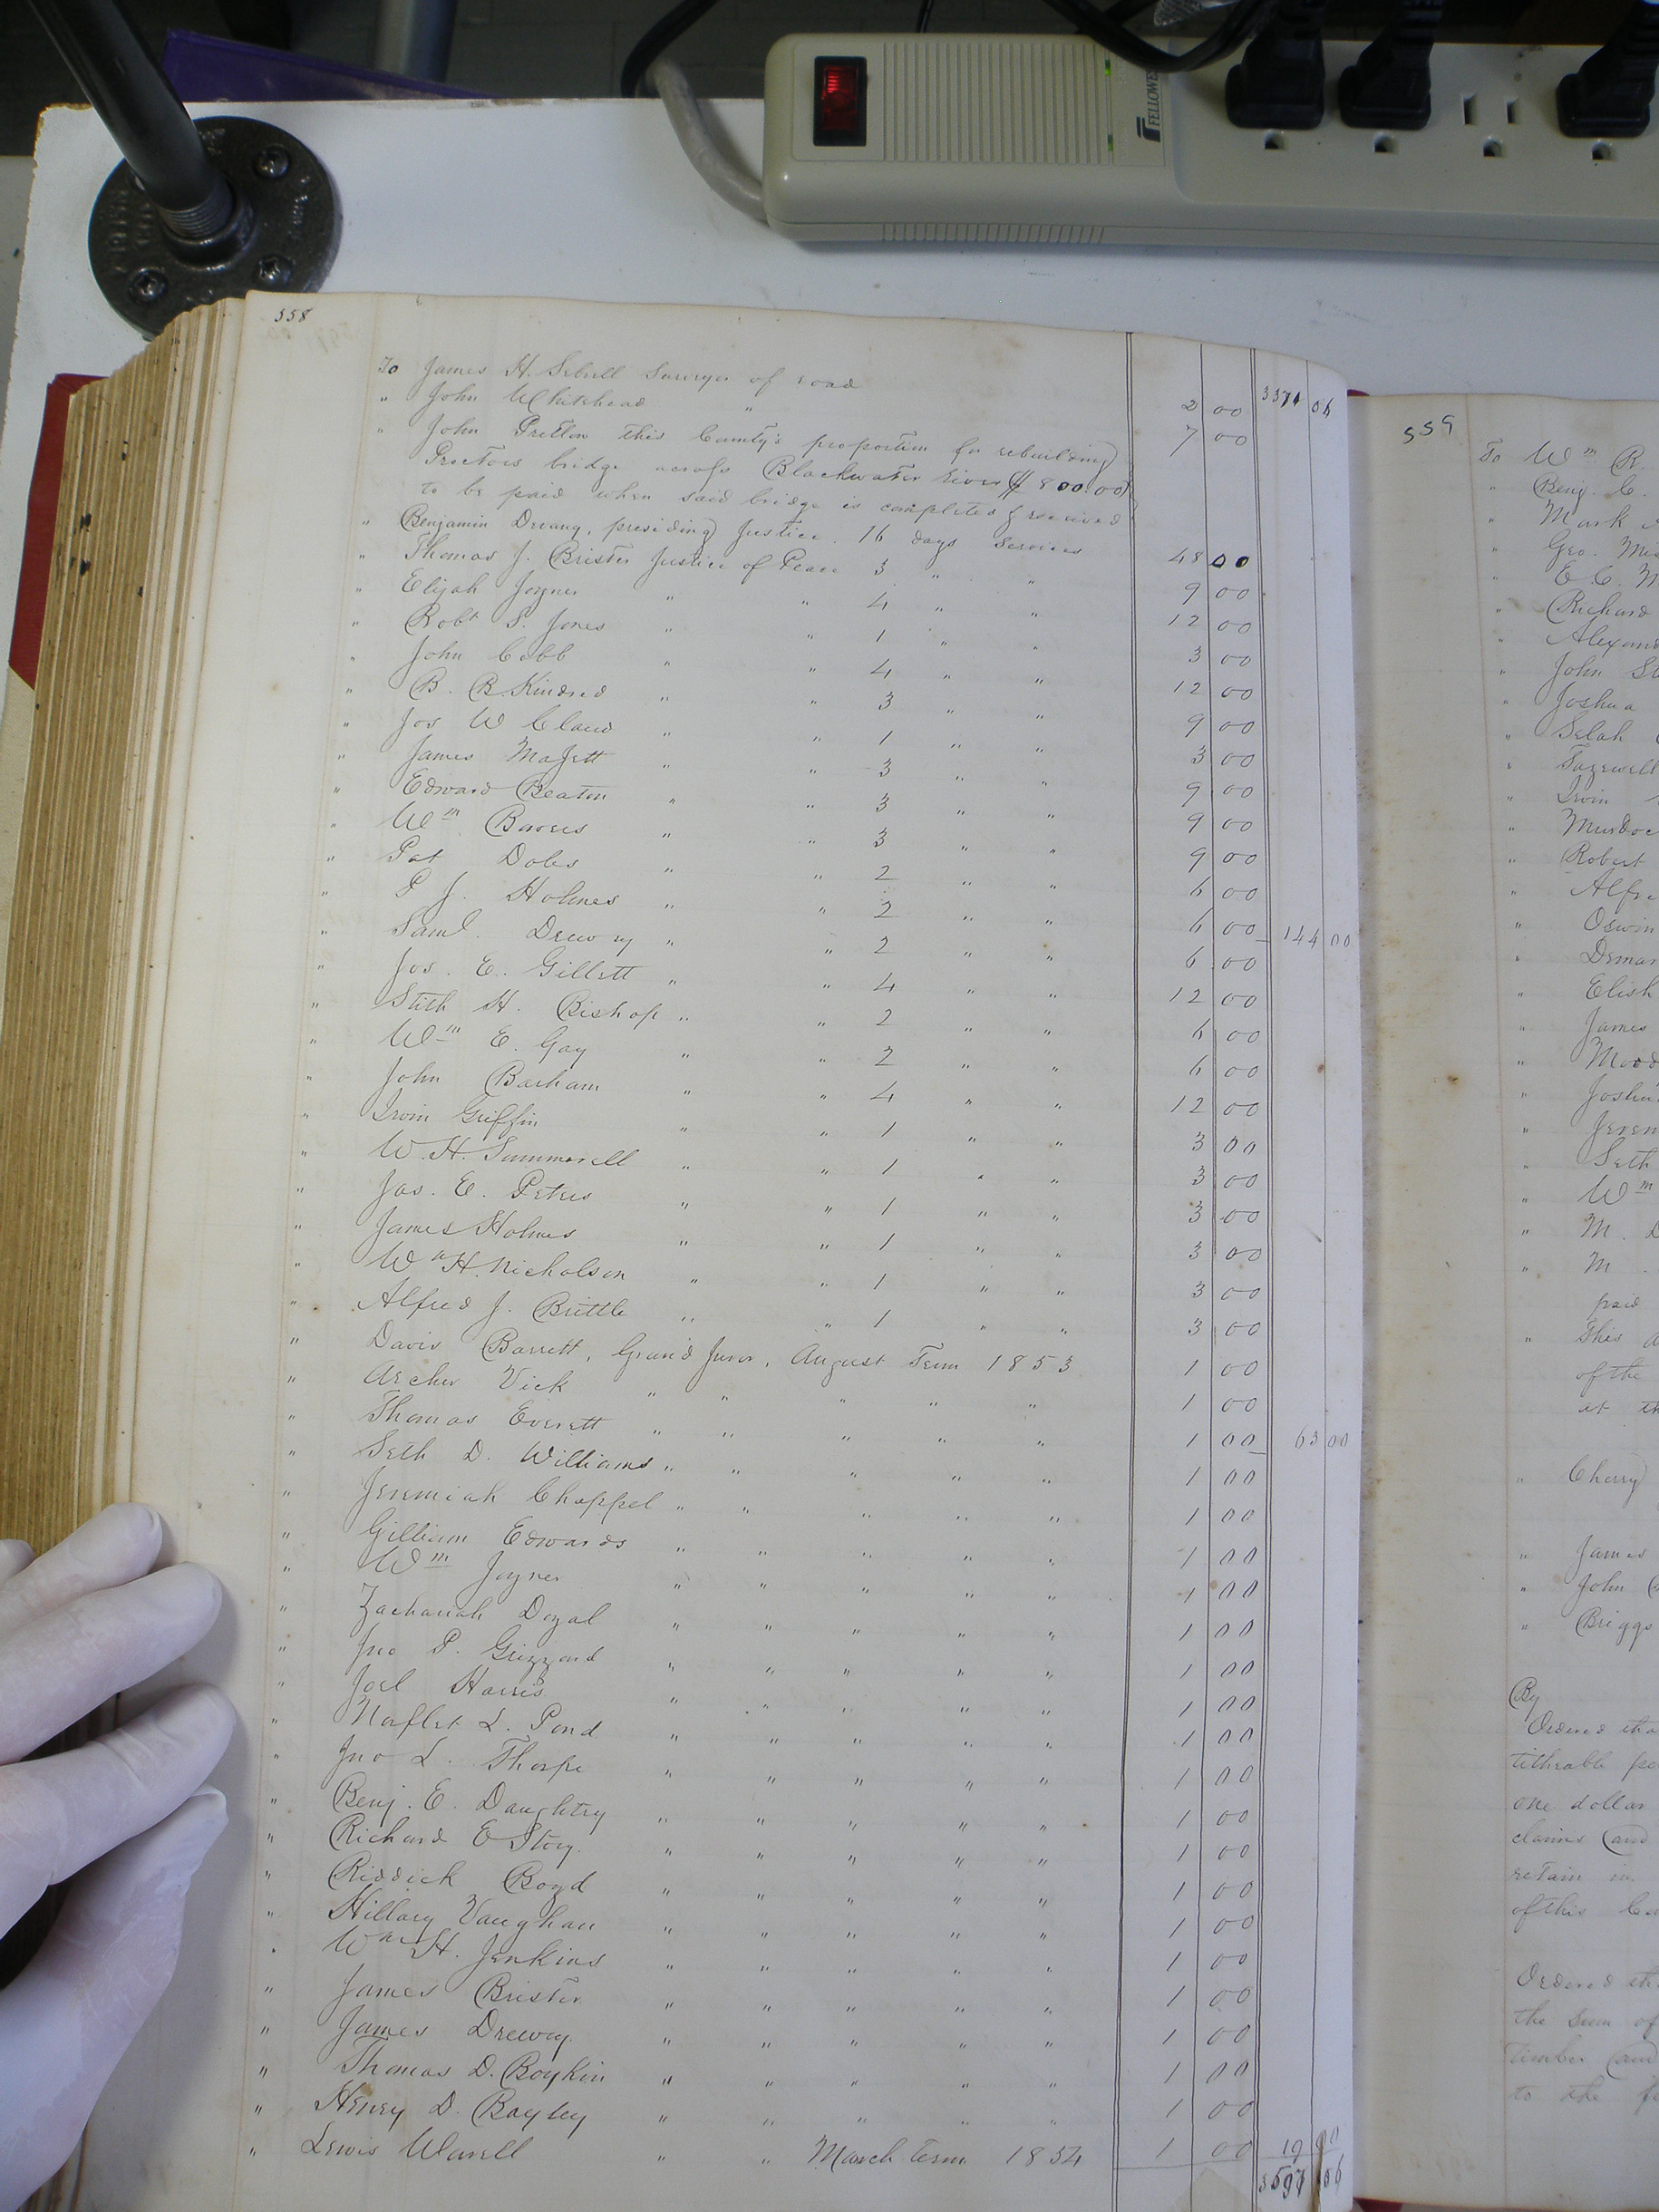 FELLOWES
558
3371 06
To James H. Sebrell Surveyor of road 2 00
" John Whitehead " 7 00
" John Pretlow this County's proportion for rebuilding
Proctors bridge across Blackwater river ($800.00)
to be paid when said bridge is completed & received
" Benjamin Drewry, presiding Justice. 16 days services 48 00
" Thomas J. Brister Justice of Peace 3 " " 9 00
" Elijah Joyner " " 4 " " 12 00
" Robt S. Jones " " 1 " " 3 00
" John Cobb " " 4 " " 12 00
" B. B. Kindred " " 3 " " 9 00
" Jos W Claud " " 1 " " 3 00
" James Majett " " 3 " " 9 00
" Edward Beaton " " 3 " " 9 00
" Wm Barrers " " 3 " " 9 00
" Pat Doles " " 2 " " 6 00
" P J. Holmes " " 2 " " 6 00 144 00
" Saml. Drewry " " 2 " " 6 00
" Jos. E. Gillett " " 4 " " 12 00
" Stith H. Bishop " " 2 " " 6 00
" Wm E. Gay " " 2 " " 6 00
" John Barham " " 4 " " 12 00
" Irvin Griffin " " 1 " " 3 00
" W. H. Summerell " " 1 " " 3 00
" Jas. E. Peters " " 1 " " 3 00
" James Holmes " " 1 " " 3 00
" Wm H. Nicholson " " 1 " " 3 00
" Alfred J. Brittle " " 1 " " 3 00
" Davis Barrett, Grand Juror, August Term 1853 1 00
" Archer Vick " " " " " 1 00
" Thomas Everett " " " " " 1 00 63 00
" Seth D. Williams " " " " " 1 00
" Jeremiah Chappel " " " " " 1 00
" Gilliam Edwards " " " " " 1 00
" Wm Joyner " " " " " 1 00
" Zachariah Doyal " " " " " 1 00
" Jno P. Grizzard " " " " " 1 00
" Joel Harris " " " " " 1 00
" Norflet L. Pond " " " " " 1 00
" Jno L. Thorpe " " " " " 1 00
" Benj. E. Daughtry " " " " " 1 00
" Richard E Story " " " " " 1 00
" Riddick Boyd " " " " " 1 00
" Hillary Vaughan " " " " " 1 00
" Wm H. Jenkins " " " " " 1 00
" James Brister " " " " " 1 00
" James Drewry " " " " " 1 00
" Thomas D. Boykin " " " " " 1 00
" Henry D. Bayley " " " " " 1 00
" Lewis Worrell " " March Term 1854 1 00 19 00
3597 06
559
To Wm R.
" Benj. C.
" Mark
" Geo.
" E. C.
" Richard
" Alexand
" John
" Joshua
" Selah
" Tazewell
" Irvin
" Murdoc
" Robert
" Alfre
" Oswin
" Demar
" Elish
" James
" Mood
" Joshu
" Jerem
" Seth
" Wm
" M. D
" M.
paid
" This
of the
at th
" Cherry
" James
" John
" Briggs
By
Ordered tha
titheable po
one dollar
claims (and
retain in
of this Co
Ordered th
the sum of
timber (and
to the